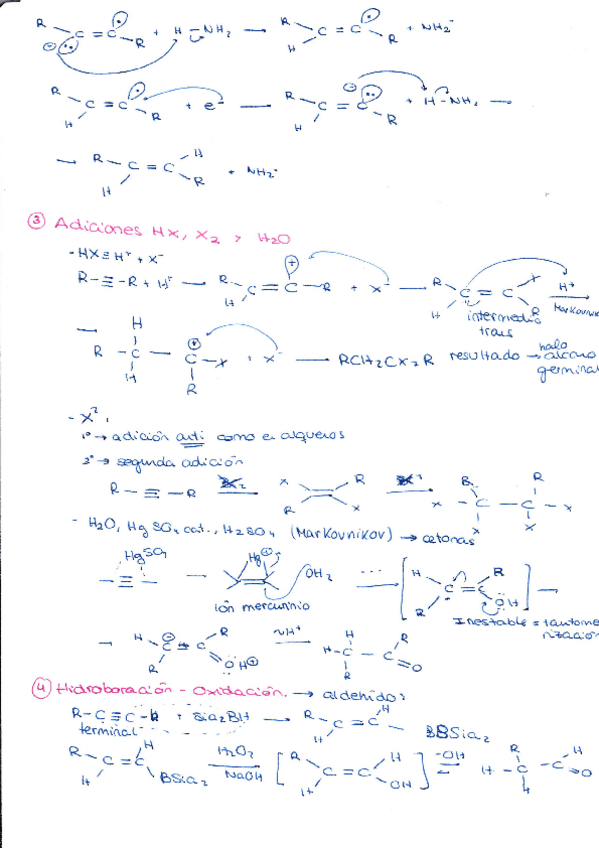 R C = C R + H - NH2 → R H C = C R + NH2-
R H C = C R + e- → R H C = C R + H - NH2 →
→ R H C = C H R + NH2-
③ Adiciones HX, X2 y H2O
- HX ≡ H+ + X-
R - ≡ - R + H+ → R H C = C R + X- → R H C = C X R H+ Markovnikov
intermedio trans
→ R - C - C - X + X- → RCH2CX2R resultado → halo alcano
germinal
- X2,
1º → adición anti como en alquenos
2º → segunda adición
R - ≡ - R → X R R X → X - C - C - X
- H2O, HgSO4 cat., H2SO4 (Markovnikov) → cetonas
HgSO4
- ≡ - → Hg OH2 ... → [H R C = C R OH] →
ión mercurinio
Inestable = tautome
rización
→ H R C = C R OH ~H+ → H - C - C = O
④ Hidroboración - Oxidación. → aldehido
R - C ≡ C - H + Sia2BH → R C = C H BSia2
terminal
R H C = C H BSia2 H2O2 NaOH → [R H C = C H OH] -OH ⇌ H - C - C = O